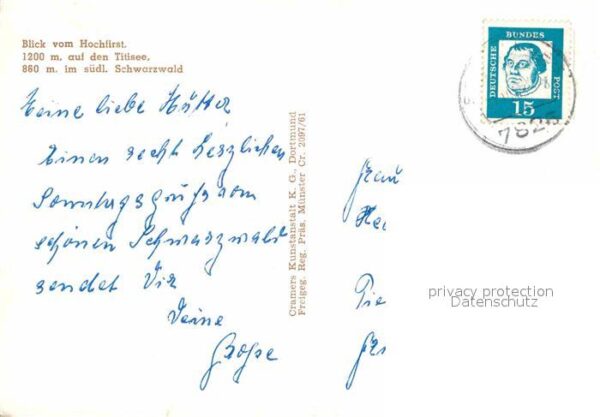 Blick vom Hochfirst.
1200 m. auf den Titisee,
860 m. im südl. Schwarzwald
Meine liebe Mutter
Einen recht herzlichen
Sonntagsgruß vom
schönen Schwarzwald
sendet Dir
Deine
Cramers Kunstanstalt K. G., Dortmund
Freigeg. Reg. Präs. Münster Cr. 2097/61
DEUTSCHE BUNDES POST
15
782
Frau
privacy protection
Datenschutz